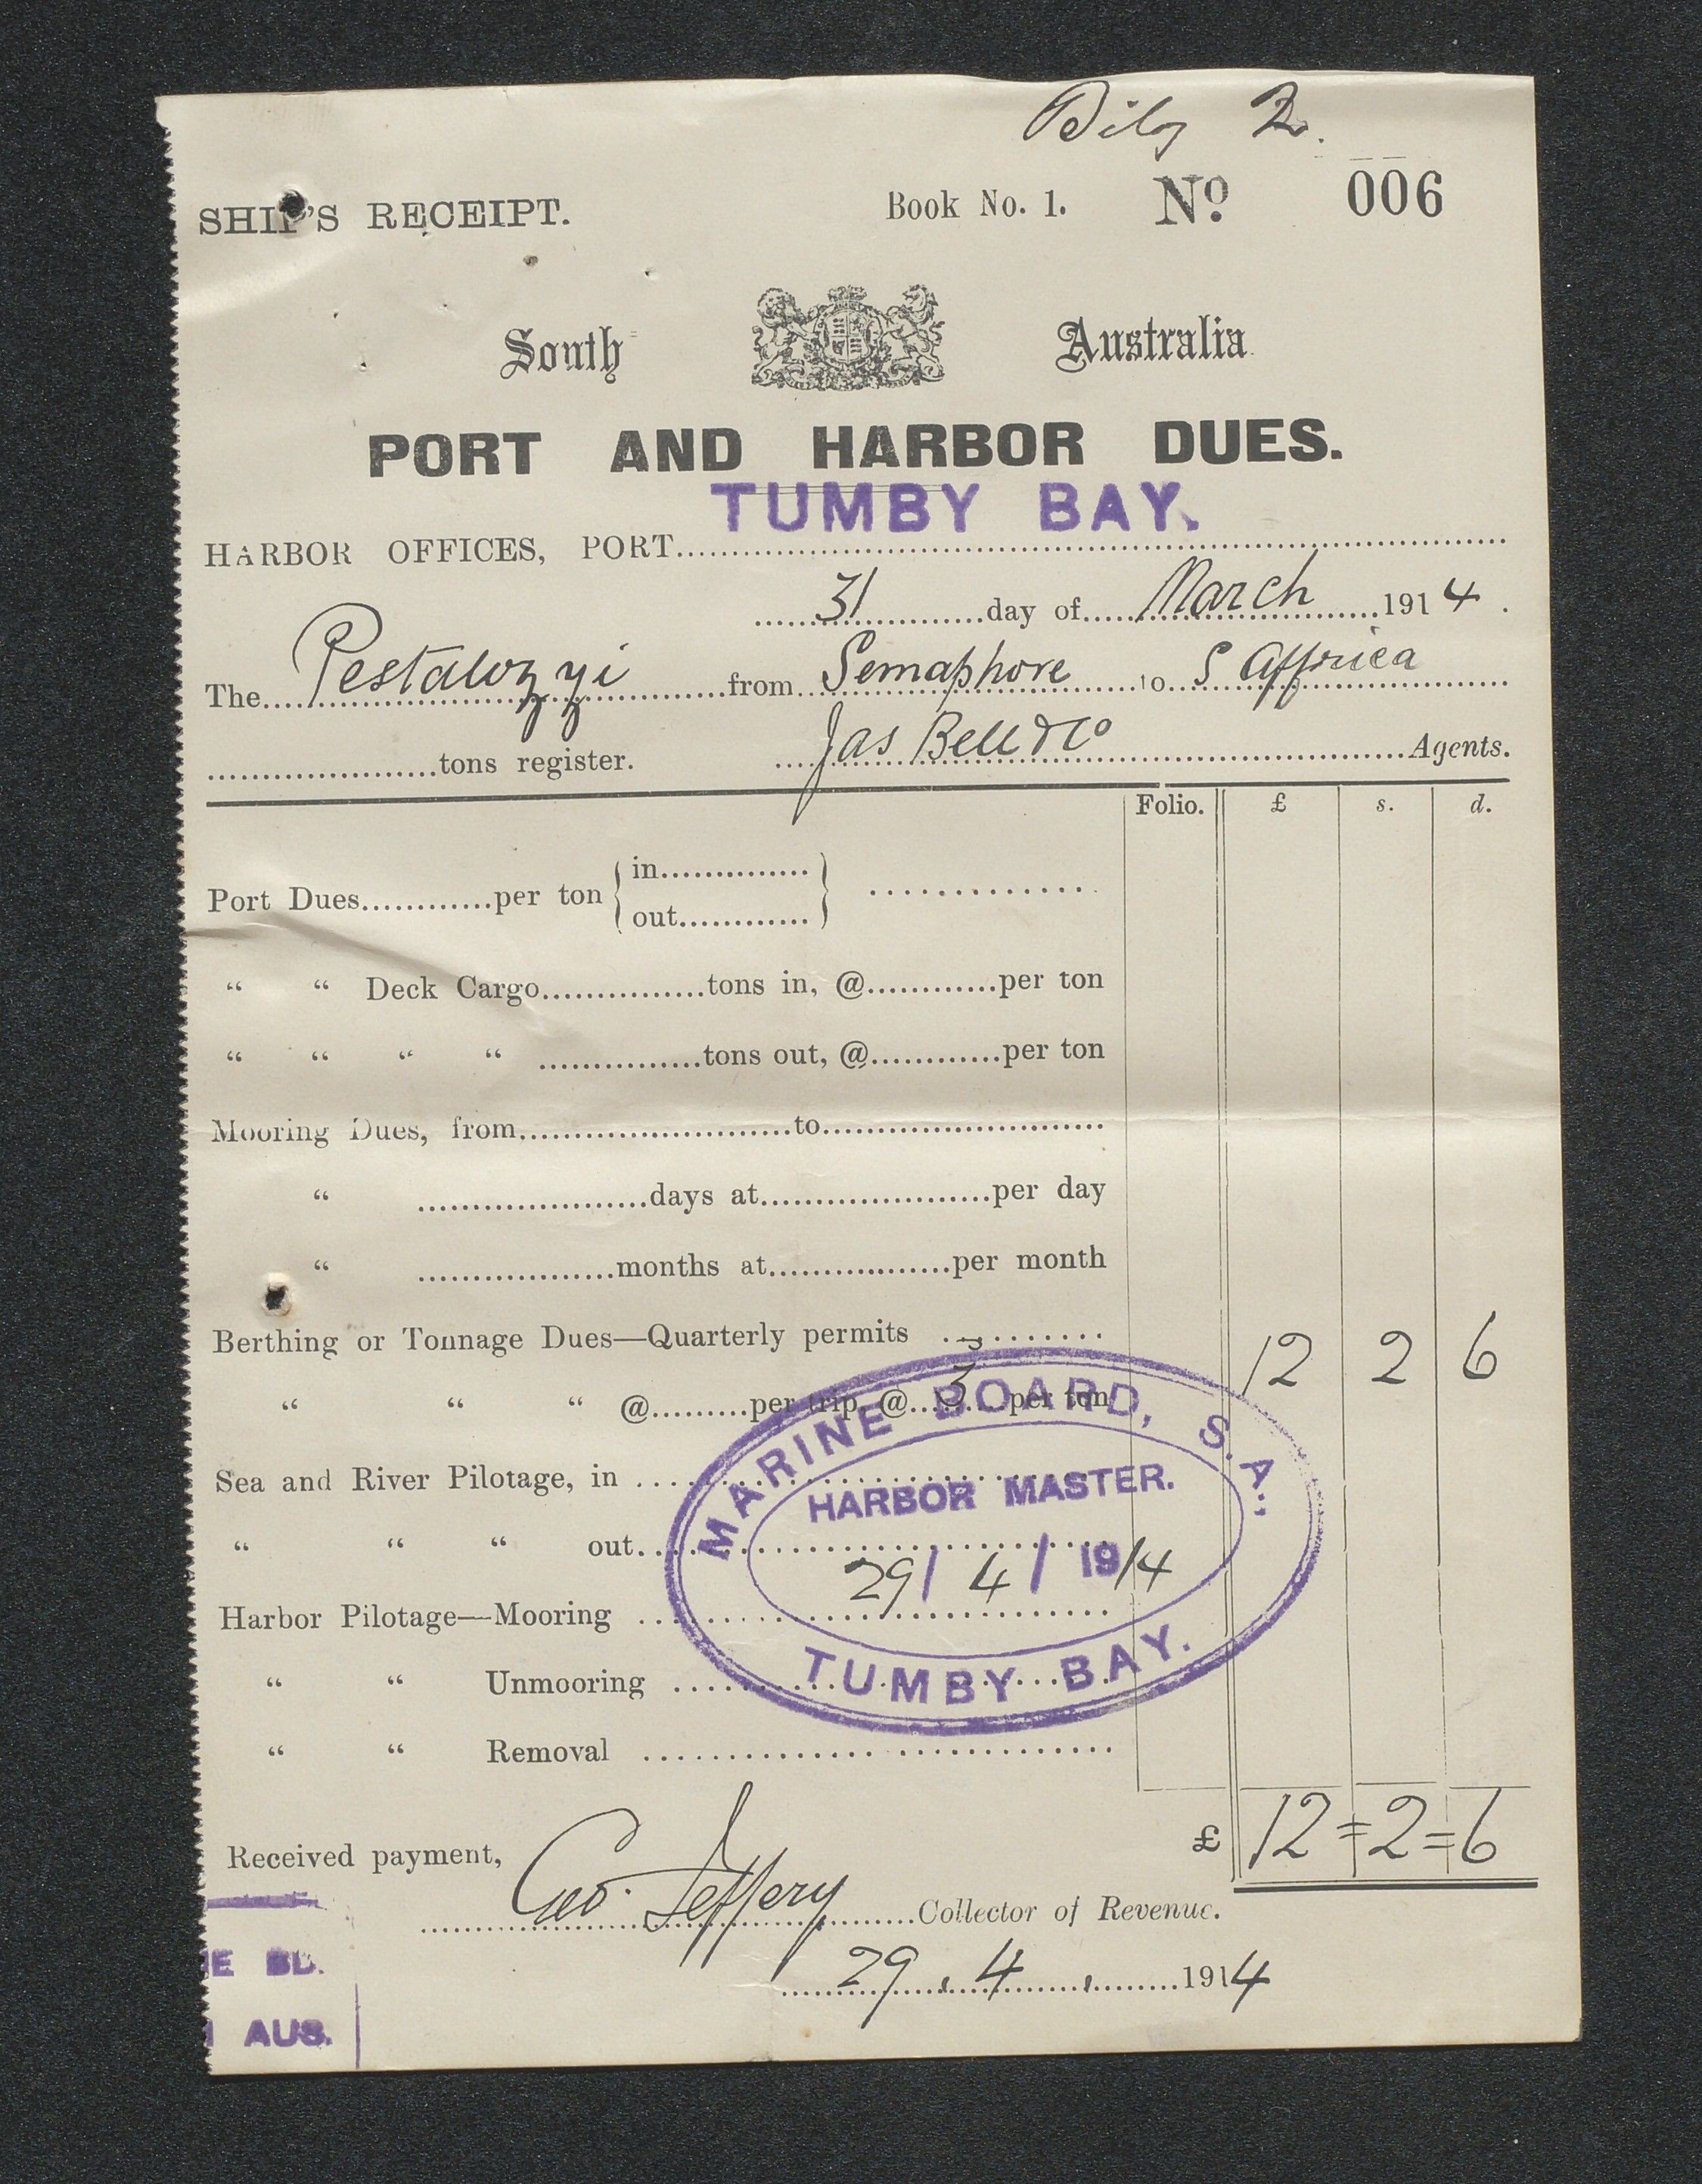 Bilg 2.
SHIP'S RECEIPT. Book No. 1. No. 006
South Australia
PORT AND HARBOR DUES.
TUMBY BAY.
HARBOR OFFICES, PORT
31 day of March 1914.
The Pestalozzi from Semaphore to S Affrica
tons register. Jas Bell & Co Agents.
Folio. £ s. d.
Port Dues............per ton { in.............. out............ }
“ “ Deck Cargo...............tons in, @............per ton
“ “ “ “ ...............tons out, @............per ton
Mooring Dues, from.........................to.........................
“ .....................days at.....................per day
“ ..................months at.................per month
Berthing or Tonnage Dues—Quarterly permits .......... 12 2 6
“ “ “ @.........per trip, @...3...per ton
Sea and River Pilotage, in
“ “ “ out
Harbor Pilotage—Mooring
“ “ Unmooring
“ “ Removal
MARINE BOARD, S.A.,
HARBOR MASTER.
29/ 4/ 1914
TUMBY BAY.
£ 12=2=6
Received payment,
Geo. Jeffery Collector of Revenue.
29. 4. 1914
E BD.
AUS.